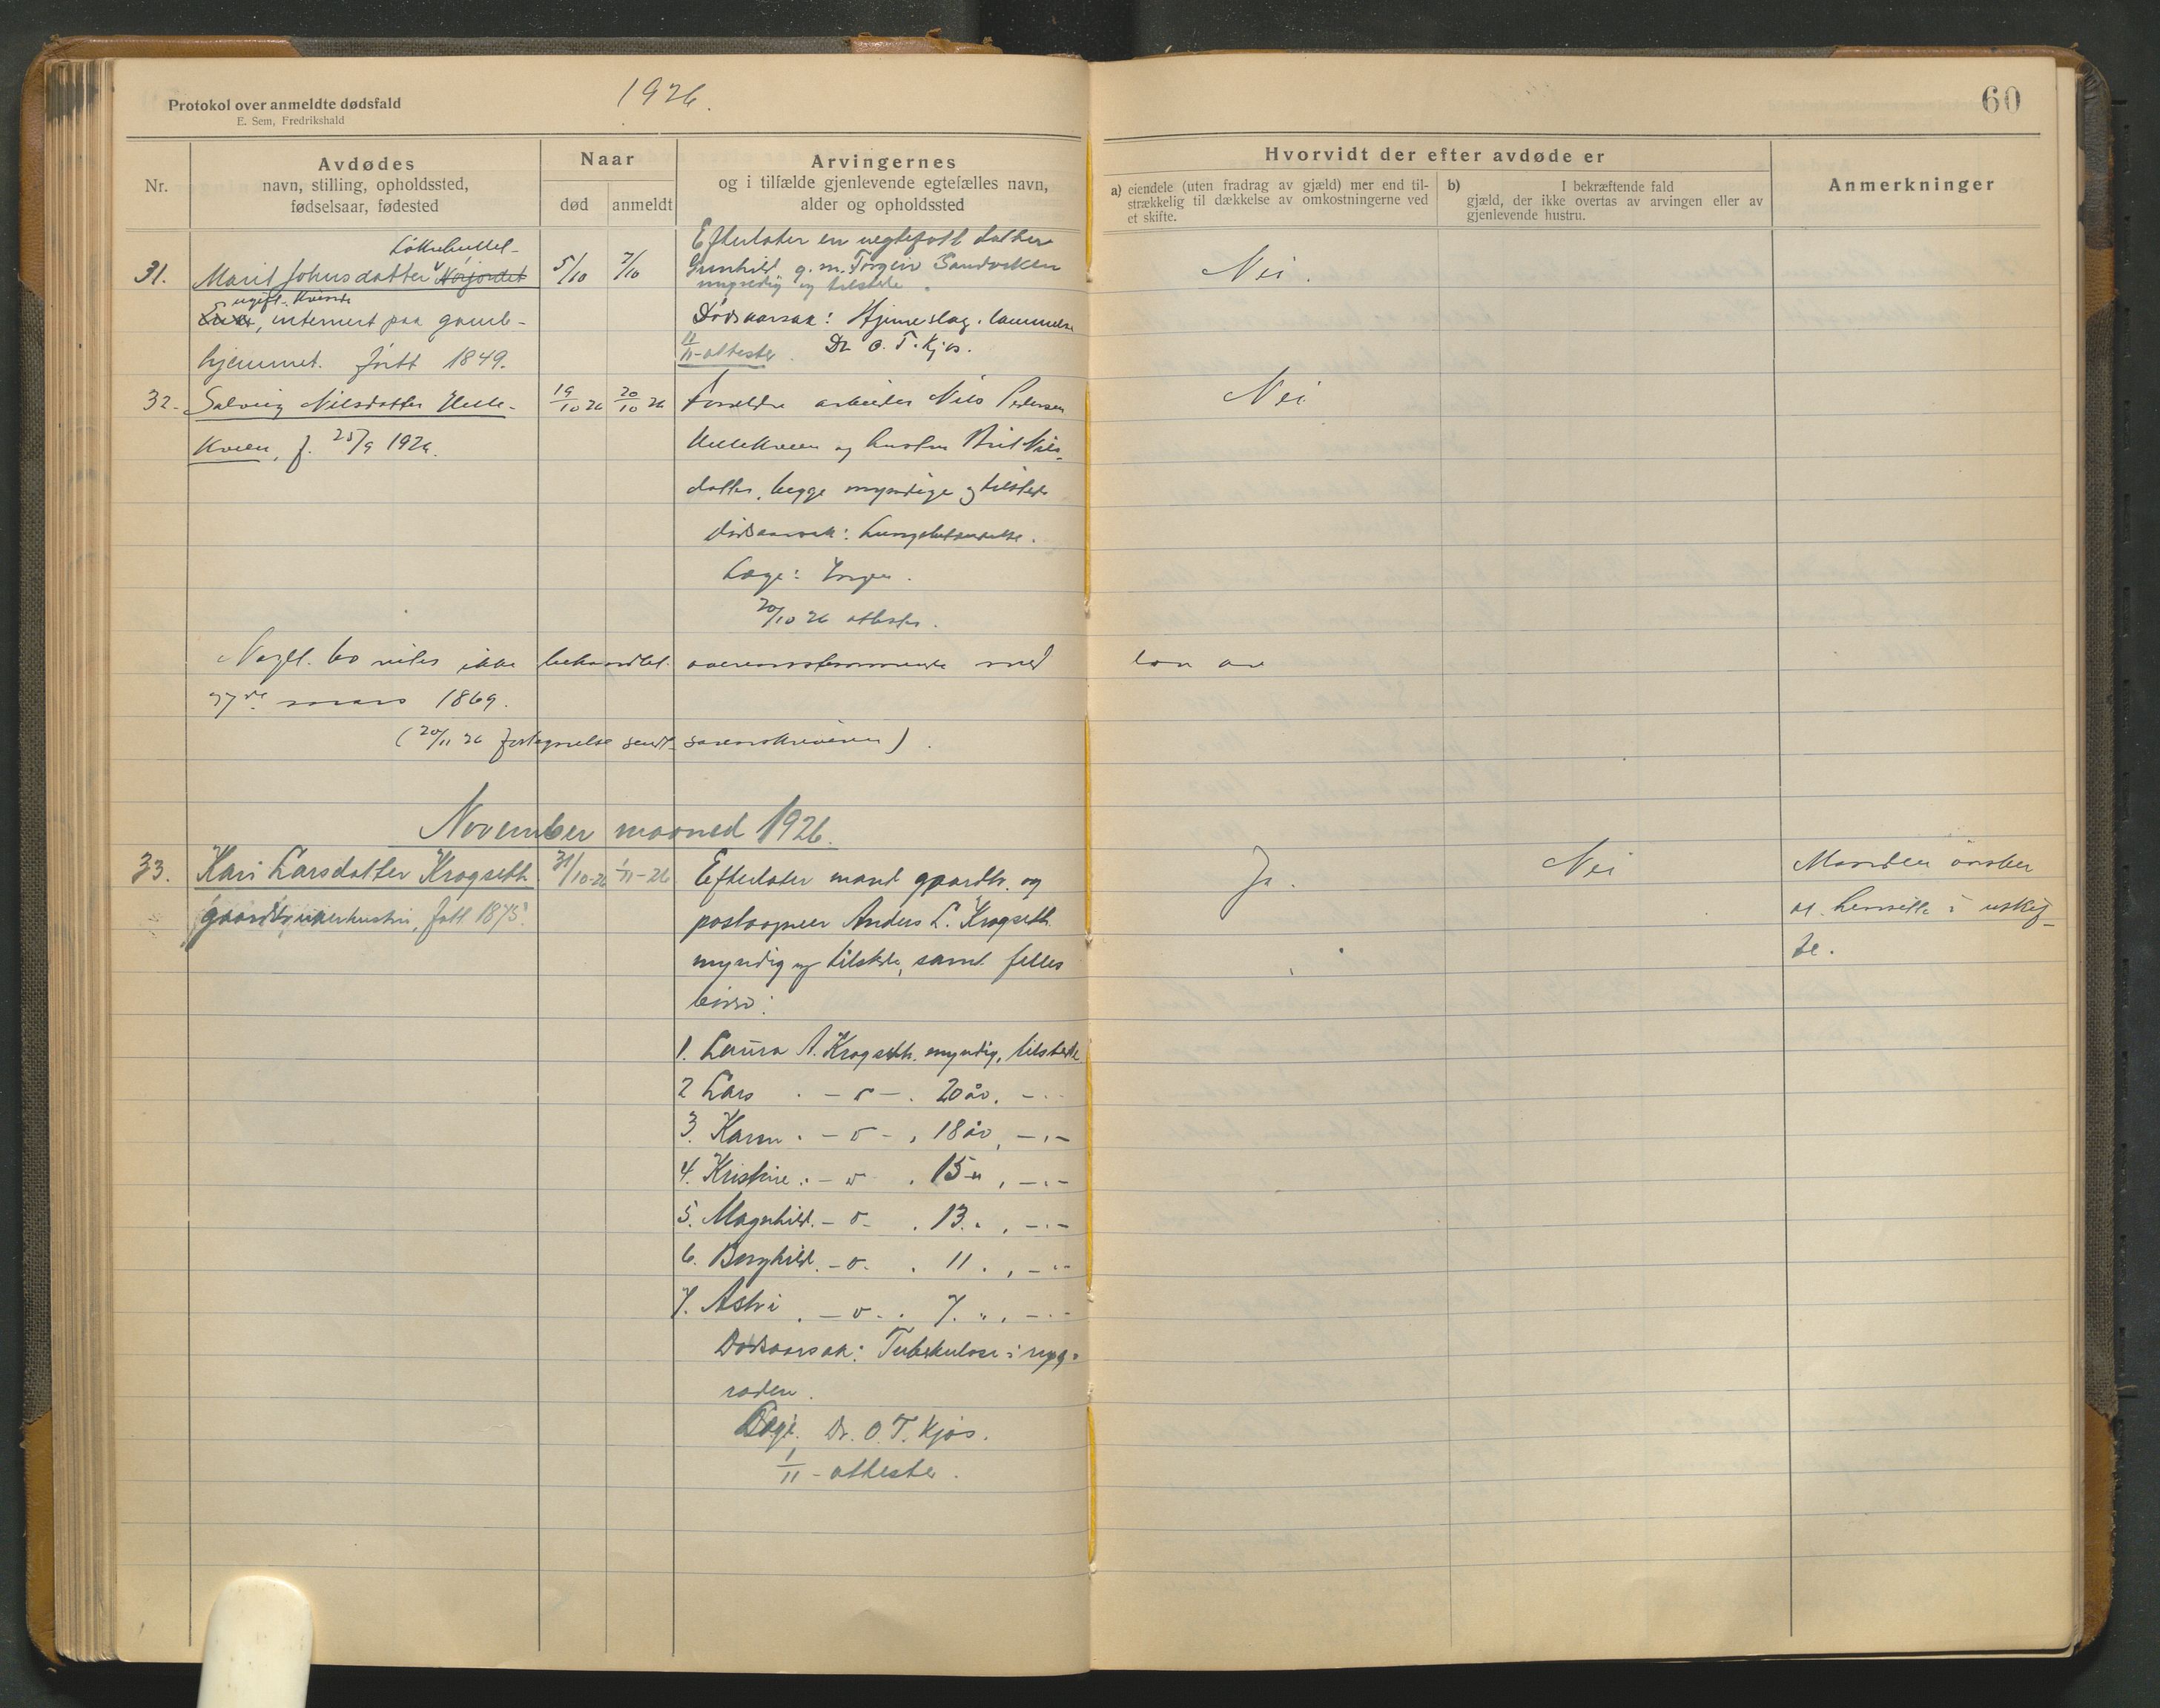 Protokol over anmeldte dødsfald
E. Sem, Fredrikshald
1926.
60
Nr.
Avdødes
navn, stilling, opholdssted,
fødselsaar, fødested
Naar
død
anmeldt
Arvingernes
og i tilfælde gjenlevende egtefælles navn,
alder og opholdssted
Hvorvidt der efter avdøde er
a) eiendele (uten fradrag av gjæld) mer end til-
strækkelig til dækkelse av omkostningerne ved
et skifte.
b) I bekræftende fald
gjæld, der ikke overtas av arvingen eller av
gjenlevende hustru.
Anmerkninger
31. Marit Johnsdatter
ugift. kvinde
internert paa gamle-
hjemmet. født 1849.
5/10
7/10
Efterlater en uegtefødt datter
Gunhild g. m. Torgeir Sandviken
myndig og tilstede.
Dødsaarsak: Hjerneslag. lammelse
Dr O. T. Kjos.
11-attester.
Nei.
32. Solveig Nilsdatter Helle-
kveen, f. 25/9 1926.
19/10 26
20/10 26
Foreldre arbeider Nils Pedersen
Hellekveen og hustru Brit Nils-
datter, begge myndige og tilstede
Dødsaarsak: Lungebetendelse.
Læge: Ingen.
20/10 26 attester.
Nei
Nogl. bo vites ikke behandlet overensstemmende med lov av
27de mars 1869.
(20/11 26 fortegnelse sendt sorenskriveren).
November maaned 1926.
33. Kari Larsdatter Krogseth
gaardbrukerhustru, født 1875.
31/10-26
1/11-26
Efterlater mand gaardbr. og
postaapner Anders L. Krogseth
myndig og tilstede, samt felles
børn:
1. Laura A. Krogseth. myndig, tilstede
2 Lars . - o - . 20 år. - . -
3. Karen . - o - , 18 år, - . -
4. Kristine . - o - . 15 " , - . -
5. Magnhild. - o - . 13. " , - . -
6. Borghild. - o - . 11 . , - . -
7. Astri . - o - . 7. " , - . -
Dødsaarsak: Tuberkulose i ryg-
raden.
Læge. Dr. O. T. Kjos.
1/11 - attester.
Ja.
Nei
Manden ønsker
at hensitte i uskif-
te.